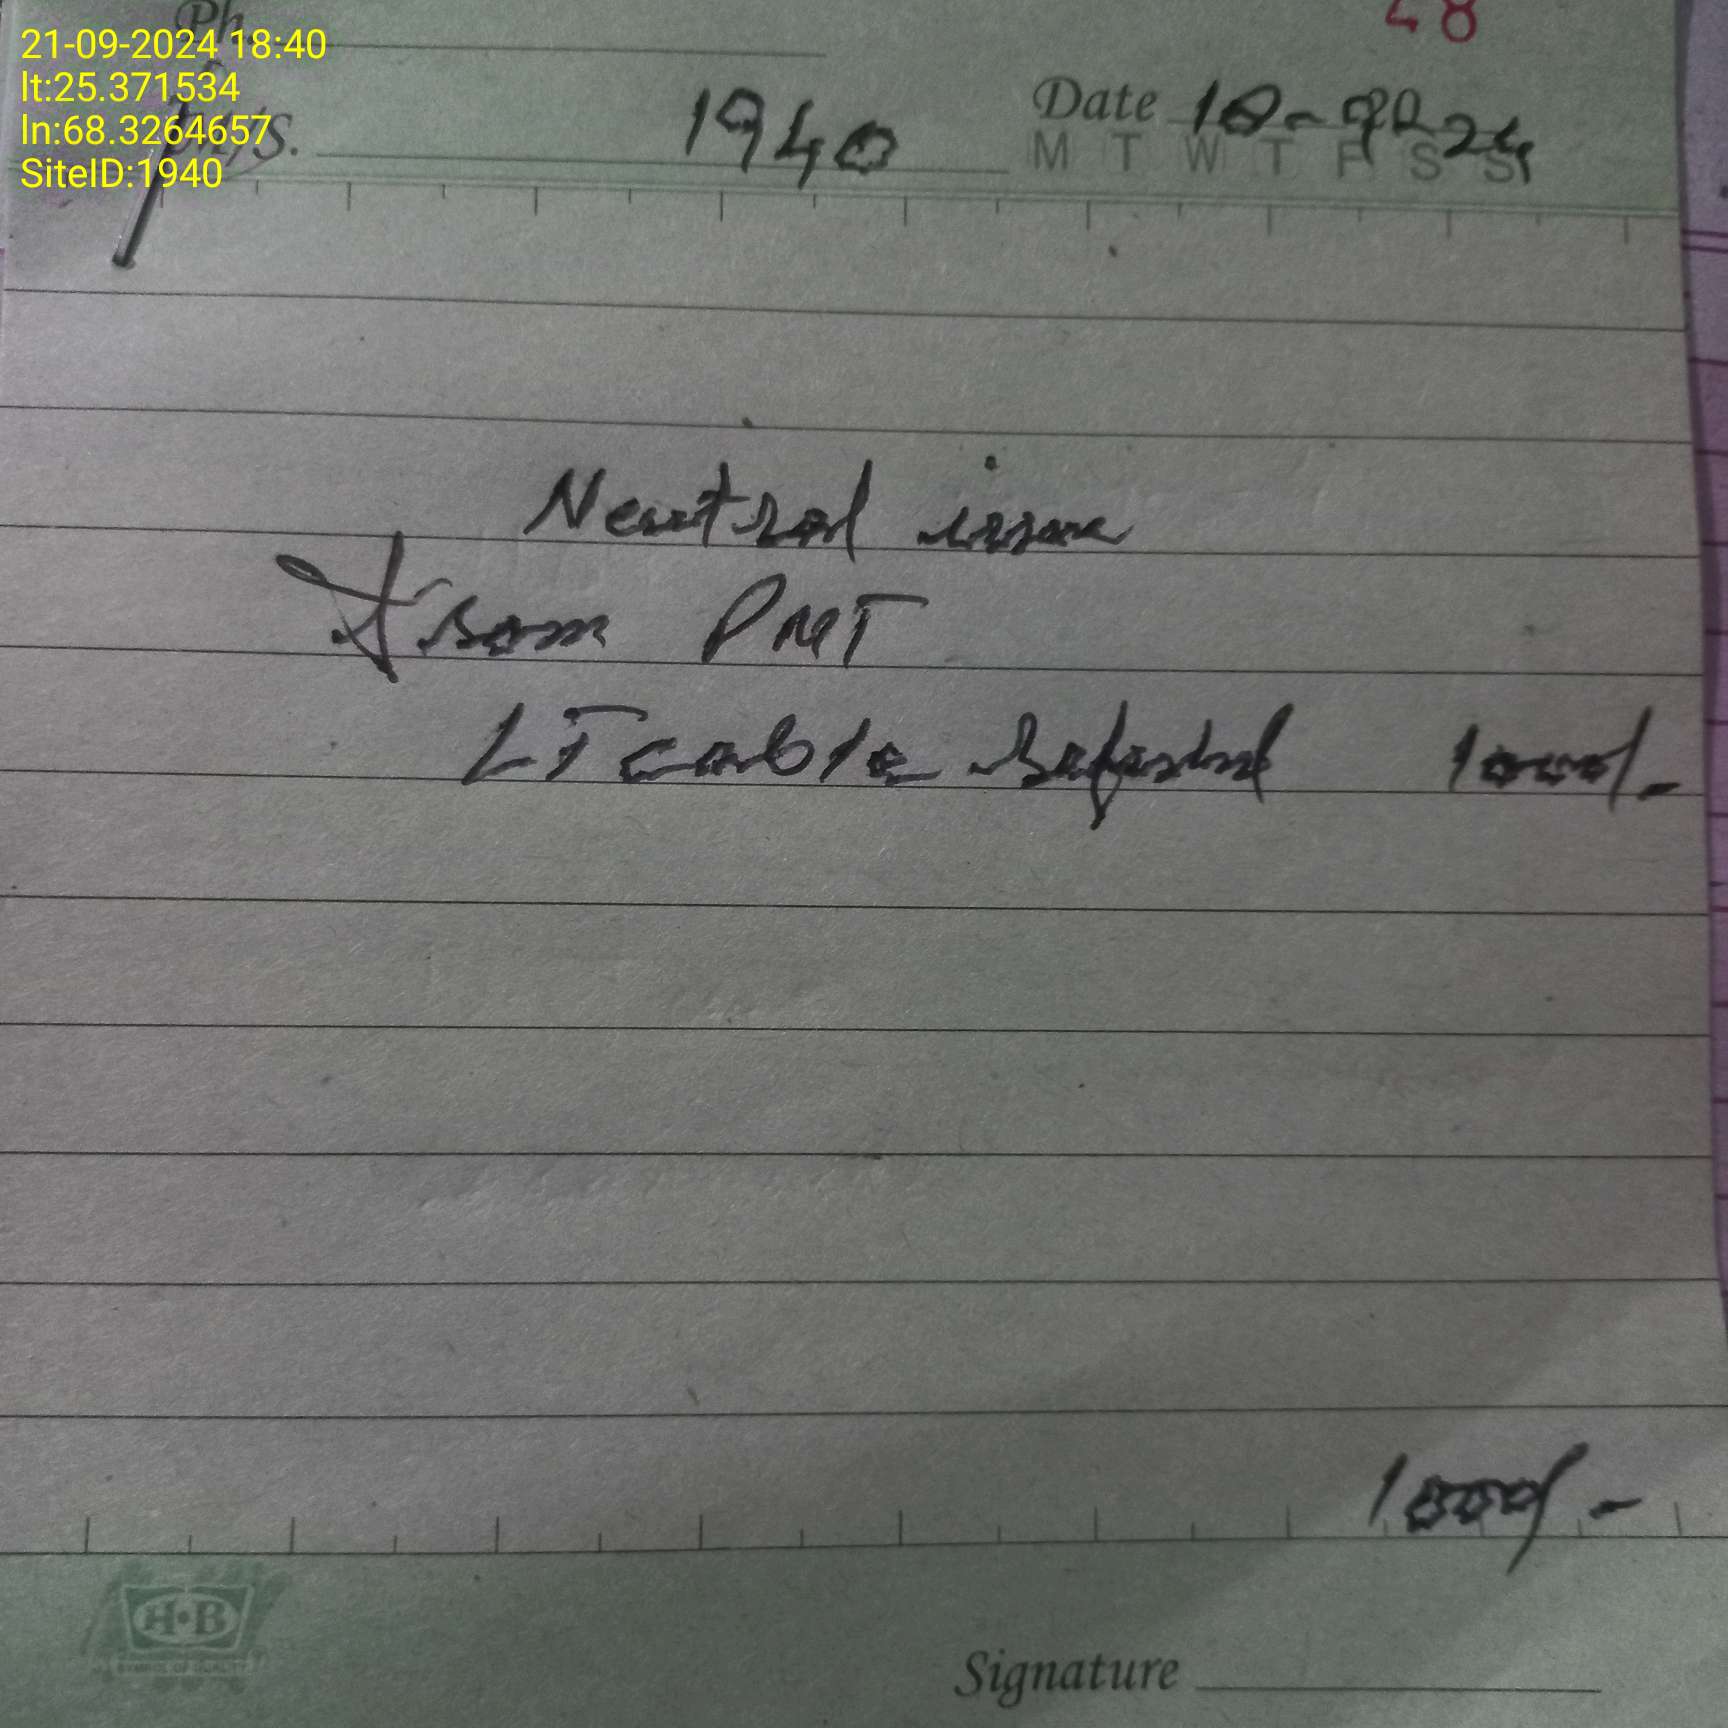 Ph
21-09-2024 18:40
lt:25.371534
ln:68.3264657
SiteID:1940
M/S. 1940
Date
M T W T F S S
48
Neutral issue
from PMT
LT cable 1000/-
1000/-
H·B
SYMBOL OF QUALITY
Signature